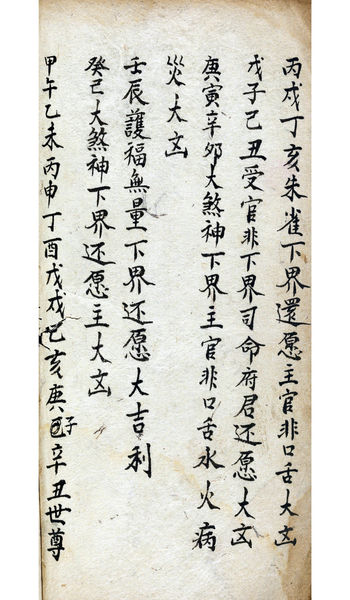 丙戍丁亥朱雀下界還愿主官非口舌大㐫
戊子己丑受官非下界司命府君还愿大㐫
庚寅辛卯大煞神下界主官非口舌水火病
災大㐫
壬辰護福無量下界还愿大吉利
癸巳大煞神下界还愿主大㐫
甲午乙未丙申丁酉戊戍己亥庚子辛丑世尊